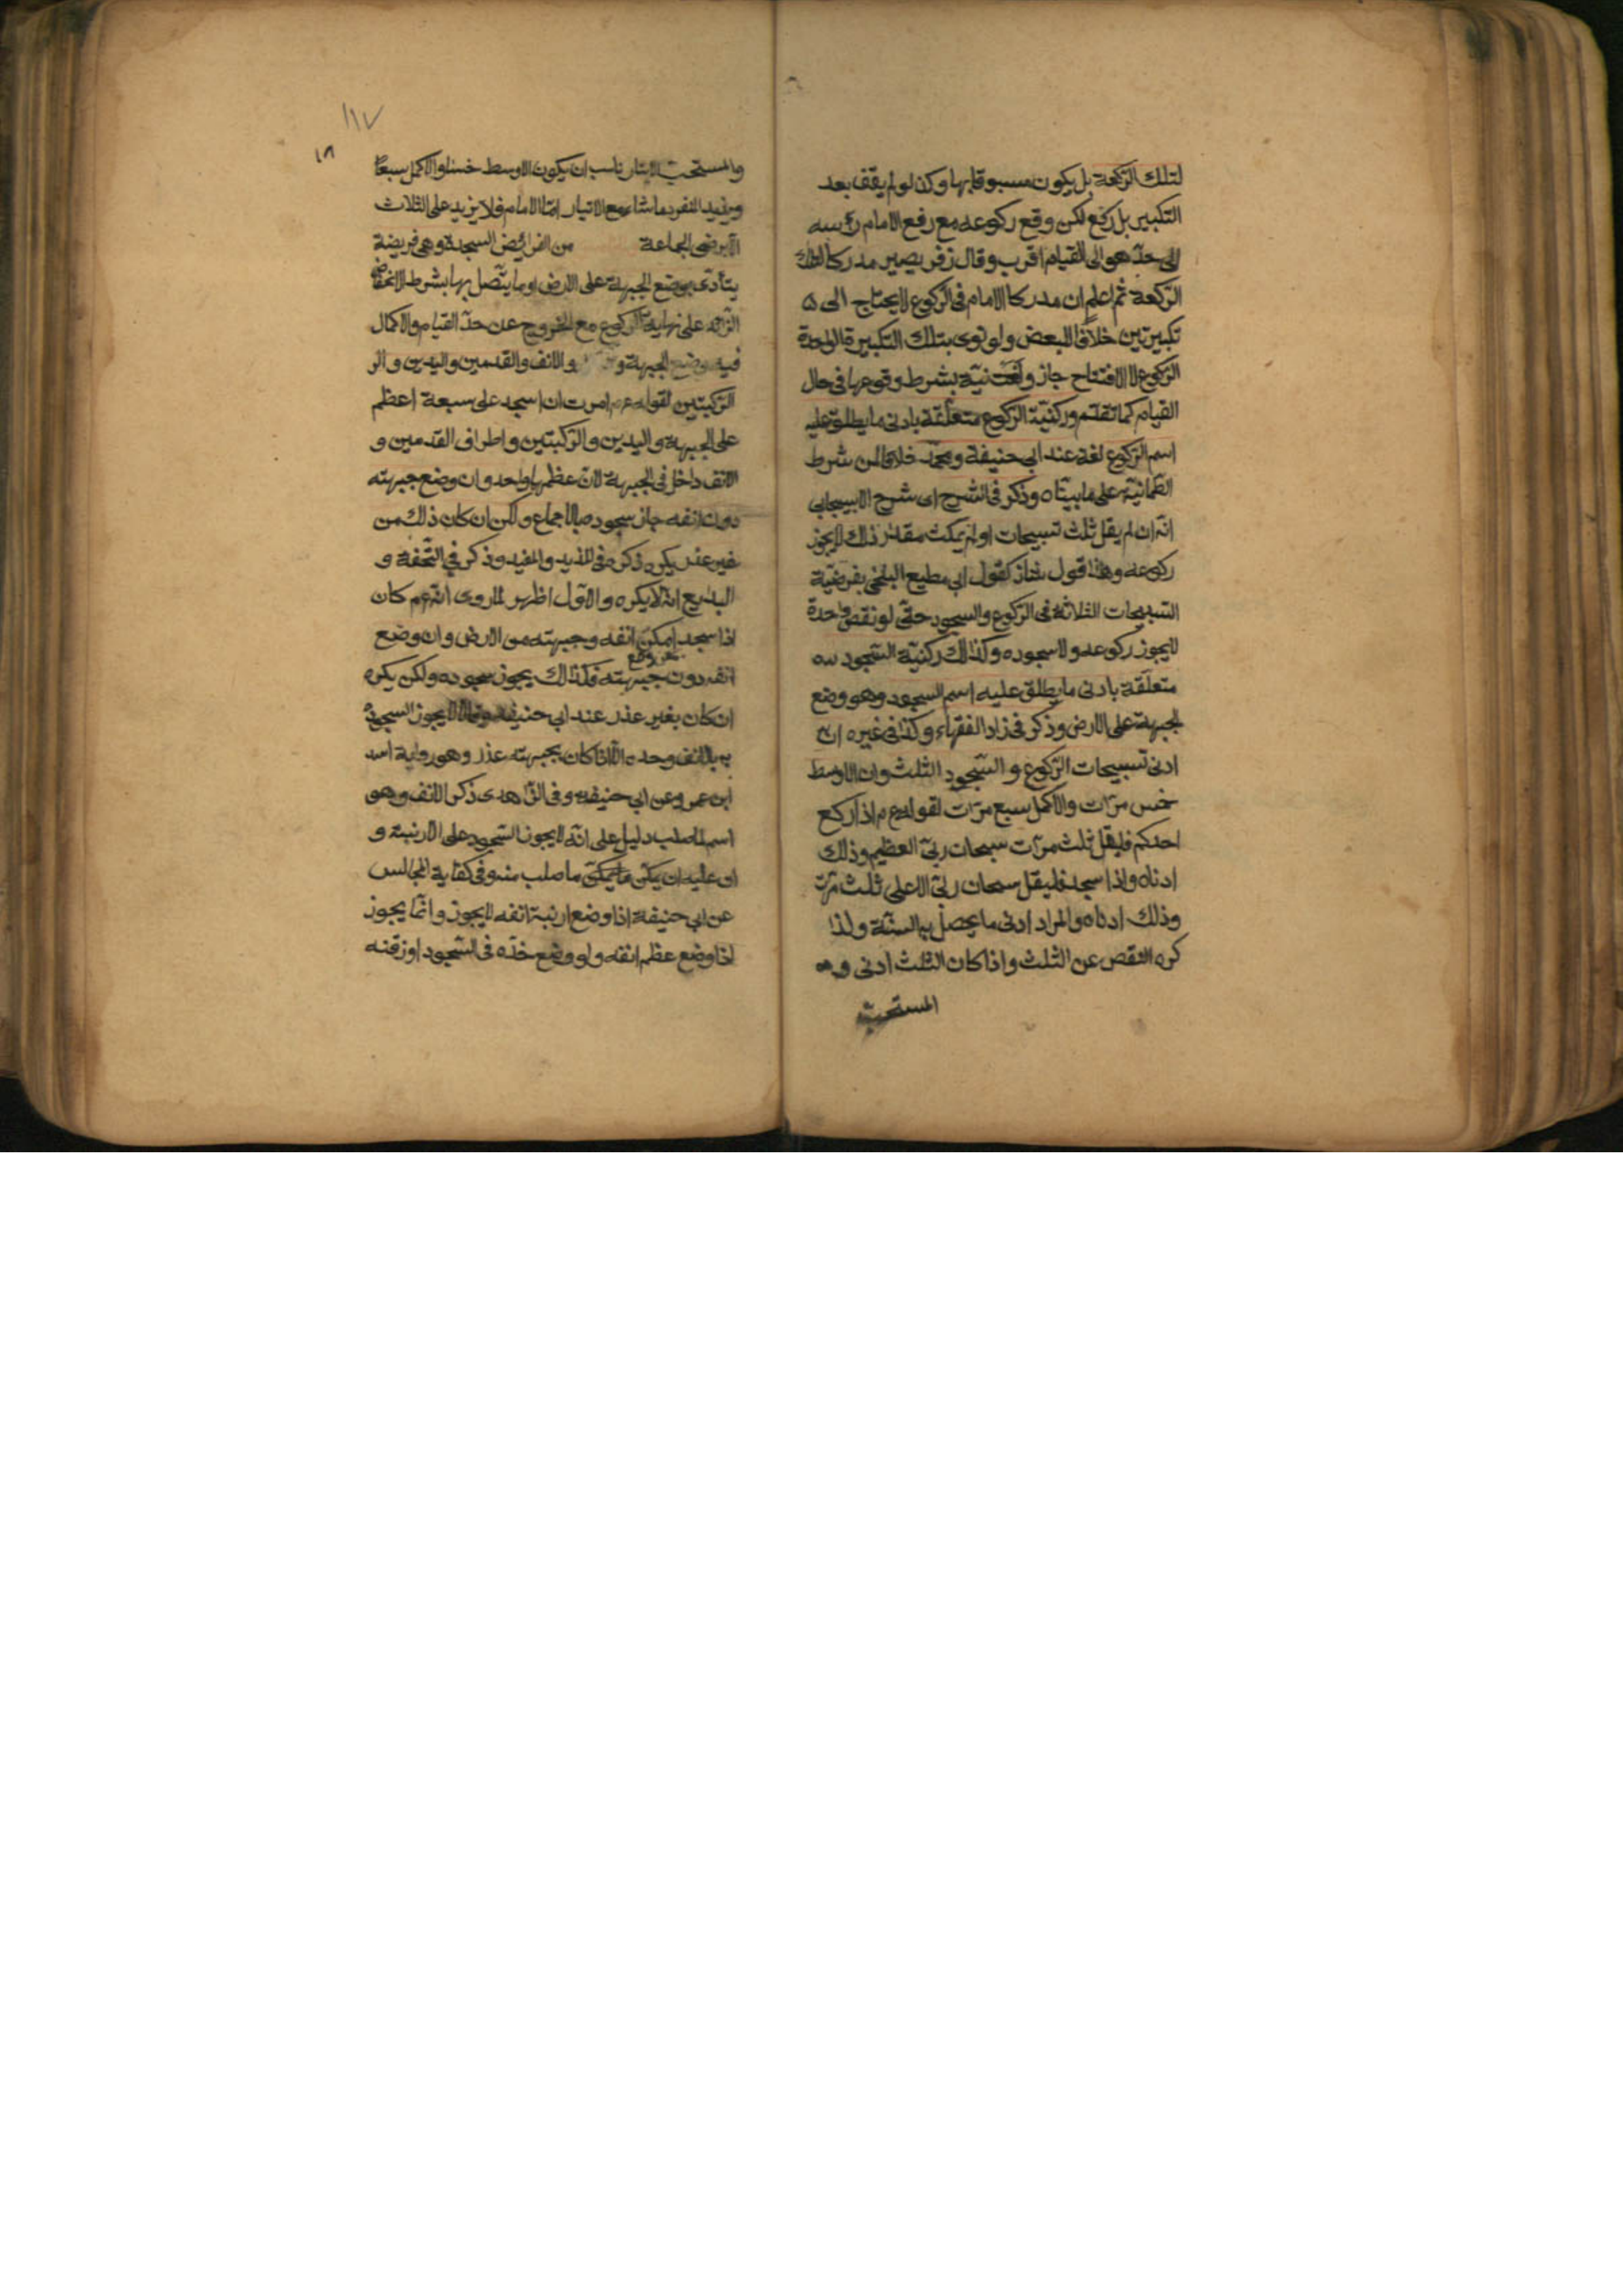 لتلك الركعة بل يكون مسبوقا بها وكذا لو لم يقف بعد
التكبير بل ركع لكن وقع ركوعه مع رفع الامام رأسه
الى حد هو الى القيام اقرب وقال زفر يصير مدركا لتلك
الركعة ثم اعلم ان مدرك الامام فى الركوع لا يحتاج الى
تكبيرتين خلافا للبعض ولو نوى بتلك التكبيرة الواحدة
الركوع لا الافتتاح جاز ولغت نيته بشرط وقوعها فى حال
القيام كما تقدم وركنية الركوع متعلقة بادنى ما يطلق عليه
اسم الركوع لغة عند ابى حنيفة ومحمد خلافا لمن شرط
الطمانية على ما بيناه وذكر فى الشرح اى شرح الاسبيجابى
انه ان لم يقل ثلث تسبيحات او لم يمكث مقدار ذلك لا يجوز
ركوعه وهذا قول شاذ كقول ابى مطيع البلخى بفرضية
التسبيحات الثلاثة فى الركوع والسجود حتى لو نقص واحدة
لا يجوز ركوعه ولا سجوده وكذلك ركنية السجود
متعلقة بادنى ما يطلق عليه اسم السجود وهو وضع
الجبهة على الارض وذكر فى زاد الفقهاء وكذا فى غيره ان
ادنى تسبيحات الركوع والسجود الثلث وان الاوسط
خمس مرات والاكمل سبع مرات لقوله ع م اذا ركع
احدكم فليقل ثلث مرات سبحان ربى العظيم وذلك
ادناه واذا سجد فليقل سبحان ربى الاعلى ثلث مرات
وذلك ادناه والمراد ادنى ما يحصل به السنة ولذا
كره النقص عن الثلث واذا كان الثلث ادنى و
المستحب
١١٧
١٨
والمستحب الايتار ناسب ان يكون الاوسط خمسا والاكمل سبعا
ويزيد المنفرد ما شاء مع الايتار اما الامام فلا يزيد على الثلاث
الا برضى الجماعة من الفرائض السجدة وهى فريضة
يتأدى بوضع الجبهة على الارض او ما يتصل بها بشرط الانخفاض
الزائد على نهاية الركوع مع الخروج عن حد القيام والاكمال
فيه وضع الجبهة والانف والقدمين واليدين و
الركبتين لقوله ع م امرت ان اسجد على سبعة اعظم
على الجبهة واليدين والركبتين واطراف القدمين و
الانف داخل فى الجبهة لان عظمها واحد وان وضع جبهته
دون انفه جاز سجوده بالاجماع ولكن ان كان ذلك من
غير عذر يكره ذكره فى المزيد والمفيد وذكر فى التحفة و
البدايع انه لا يكره والاول اظهر لما روى انه ع م كان
اذا سجد امكن انفه وجبهته من الارض وان وضع
انفه دون جبهته فكذلك يجوز سجوده ولكن يكره
ان كان بغير عذر عند ابى حنيفة وقالا لا يجوز السجود
بالانف وحده الا اذا كان بجبهته عذر وهو رواية اسد
ابن عمرو عن ابى حنيفة وفى الزاهدى ذكر الانف وهو
اسم لما صلب دليل على انه لا يجوز السجود على الارنبة و
ان عليه ان يمكن ما صلب منه وفى كفاية المجالس
عن ابى حنيفة اذا وضع ارنبة انفه لا يجوز وانما يجوز
اذا وضع عظم انفه ولو وضع خده فى السجود او ذقنه